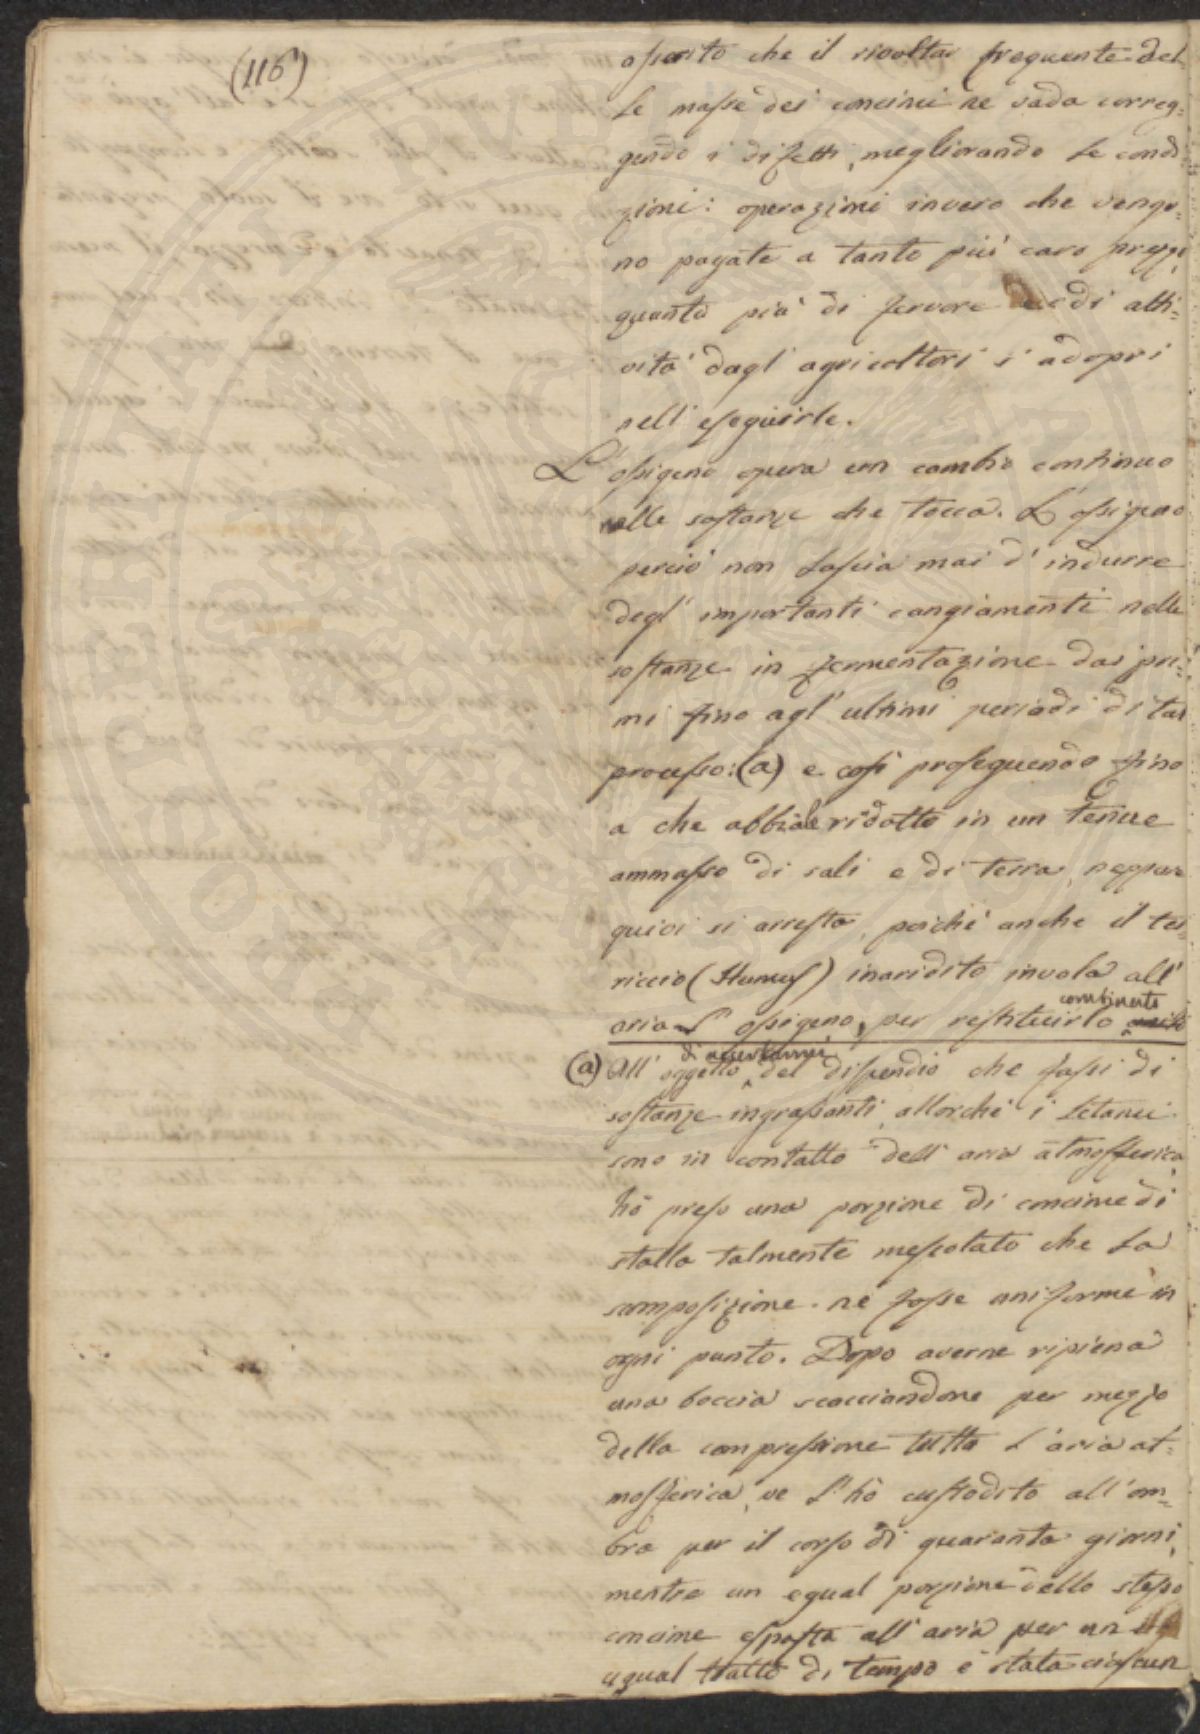 (116)
asserito che il rivoltar frequente del
le masse dei concimi ne vada correg=
gendo i difetti, megliorando le condi
zioni: operazioni invero che vengo=
no pagate a tanto più caro prezzo,
quanto più di fervore e di atti=
vità dagl' agricoltori s' adopri
nell' eseguirle.
L' ossigeno opera un cambio continuo
nelle sostanze che tocca. L' ossigeno
perciò non lascia mai d' indurre
degl' importanti cangiamenti nelle
sostanze in fermentazione dai pri=
mi fino agl' ultimi periodi di tal
processo: (a) e così proseguendo fino
a che abbiale ridotte in un tenue
ammasso di sali e di terra, neppur
quivi si arresta, poichè anche il ter
riccio (Humus) inaridito invola all'
aria l' ossigeno, per restituirlo
combinato
(a) All' oggetto di accertarmi del dispendio che fassi di
sostanze ingrassanti, allorchè i letami
sono in contatto dell' aria atmosferica,
hò preso una porzione di concime di
stalla talmente mescolato che la
composizione ne fosse uniforme in
ogni punto. Dopo averne ripiena
una boccia scacciandone per mezzo
della compressione tutta l' aria at=
mosferica, ve l' hò custodito all' om=
bra per il corso di quaranta giorni,
mentre un egual porzione dello stesso
concime esposta all' aria per un
ugual tratto di tempo è stata ciascun